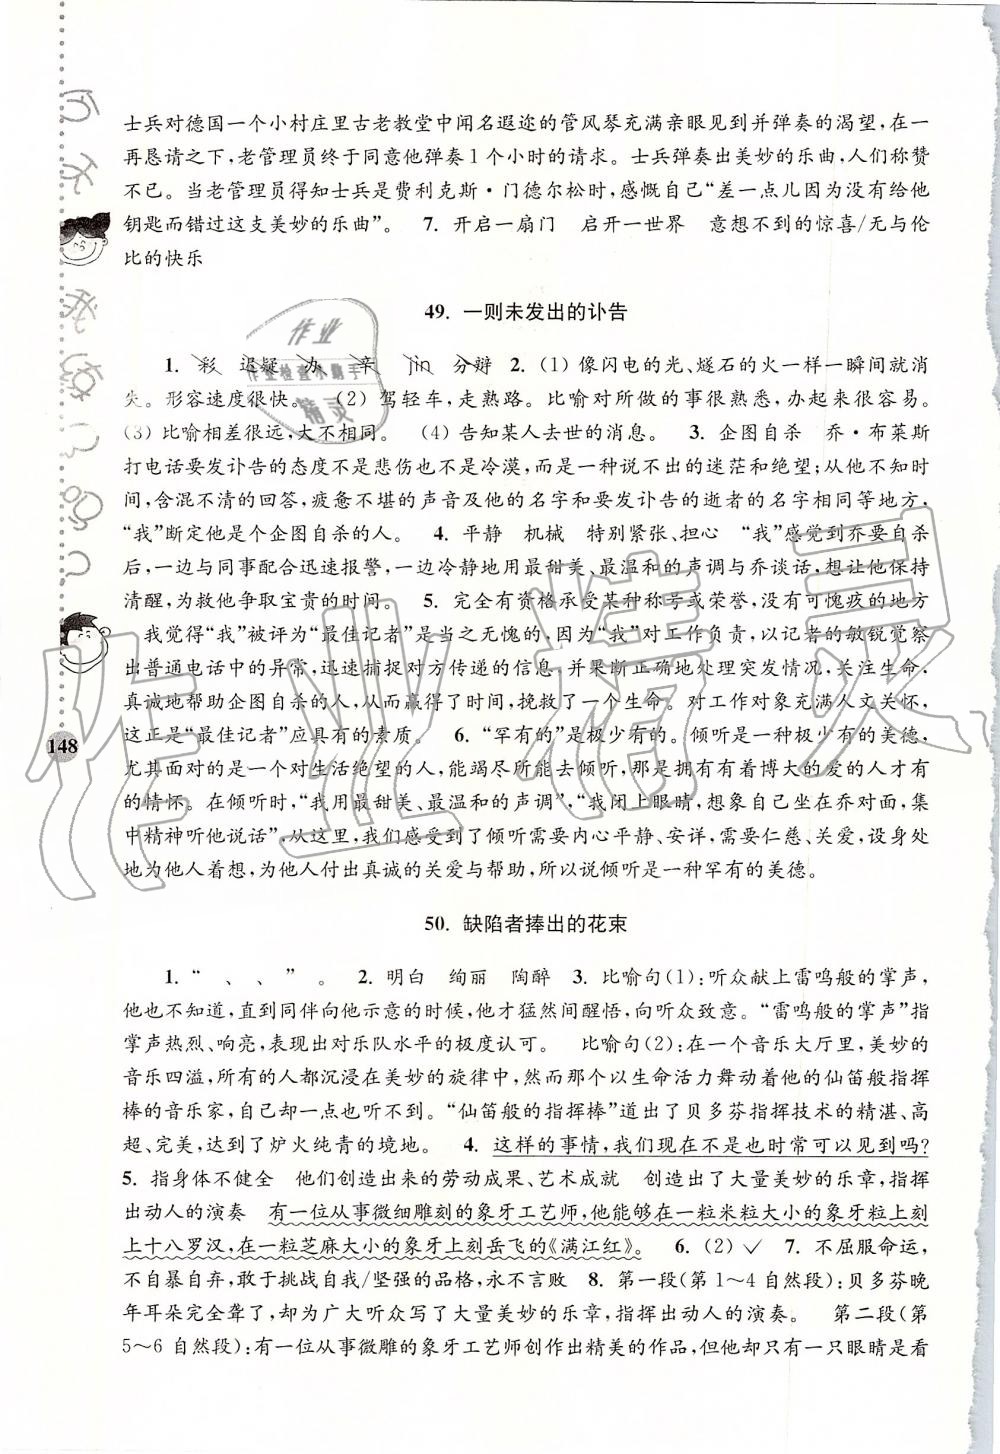 士兵对德国一个小村庄里古老教堂中闻名遐迩的管风琴充满亲眼见到并弹奏的渴望,在一
再恳请之下,老管理员终于同意他弹奏1个小时的请求。士兵弹奏出美妙的乐曲,人们称赞
不已。当老管理员得知士兵是费利克斯·门德尔松时,感慨自己“差一点儿因为没有给他
钥匙而错过这支美妙的乐曲”。 7. 开启一扇门 启开一世界 意想不到的惊喜/无与伦
比的快乐
49. 一则未发出的讣告
1. 彩 迟疑 办 辛 jìn 分辩 2. (1) 像闪电的光、燧石的火一样一瞬间就消
失。形容速度很快。 (2) 驾轻车,走熟路。比喻对所做的事很熟悉,办起来很容易。
(3) 比喻相差很远,大不相同。 (4) 告知某人去世的消息。 3. 企图自杀 乔·布莱斯
打电话要发讣告的态度不是悲伤也不是冷漠,而是一种说不出的迷茫和绝望;从他不知时
间,含混不清的回答,疲惫不堪的声音及他的名字和要发讣告的逝者的名字相同等地方,
“我”断定他是个企图自杀的人。 4. 平静 机械 特别紧张、担心 “我”感觉到乔要自杀
后,一边与同事配合迅速报警,一边冷静地用最甜美、最温和的声调与乔谈话,想让他保持
清醒,为救他争取宝贵的时间。 5. 完全有资格承受某种称号或荣誉,没有可愧疚的地方
我觉得“我”被评为“最佳记者”是当之无愧的,因为“我”对工作负责,以记者的敏锐觉察
出普通电话中的异常,迅速捕捉对方传递的信息,并果断正确地处理突发情况,关注生命,
真诚地帮助企图自杀的人,从而赢得了时间,挽救了一个生命。对工作对象充满人文关怀,
这正是“最佳记者”应具有的素质。 6. “罕有的”是极少有的。倾听是一种极少有的美德,
尤其面对的是一个对生活绝望的人,能竭尽所能去倾听,那是拥有有着博大的爱的人才有
的情怀。在倾听时,“我用最甜美、最温和的声调”,“我闭上眼睛,想象自己坐在乔对面,集
中精神听他说话”,从这里,我们感受到了倾听需要内心平静、安详,需要仁慈、关爱,设身处
地为他人着想,为他人付出真诚的关爱与帮助,所以说倾听是一种罕有的美德。
148
50. 缺陷者捧出的花束
1. “ 、 、 ” 。 2. 明白 绚丽 陶醉 3. 比喻句(1):听众献上雷鸣般的掌声,
他也不知道,直到同伴向他示意的时候,他才猛然间醒悟,向听众致意。“雷鸣般的掌声”指
掌声热烈、响亮,表现出对乐队水平的极度认可。 比喻句(2):在一个音乐大厅里,美妙的
音乐四溢,所有的人都沉浸在美妙的旋律中,然而那个以生命活力舞动着他的仙笛般指挥
棒的音乐家,自己却一点也听不到。“仙笛般的指挥棒”道出了贝多芬指挥技术的精湛、高
超、完美,达到了炉火纯青的境地。 4. 这样的事情,我们现在不是也时常可以见到吗?
5. 指身体不健全 他们创造出来的劳动成果、艺术成就 创造出了大量美妙的乐章,指挥
出动人的演奏 有一位从事微细雕刻的象牙工艺师,他能够在一粒米粒大小的象牙粒上刻
上十八罗汉,在一粒芝麻大小的象牙上刻岳飞的《满江红》。 6. (2) ✓ 7. 不屈服命运,
不自暴自弃,敢于挑战自我/坚强的品格,永不言败 8. 第一段(第1～4自然段):贝多芬晚
年耳朵完全聋了,却为广大听众写了大量美妙的乐章,指挥出动人的演奏。 第二段(第
5～6自然段):有一位从事微雕的象牙工艺师创作出精美的作品,但他却只有一只眼睛是看